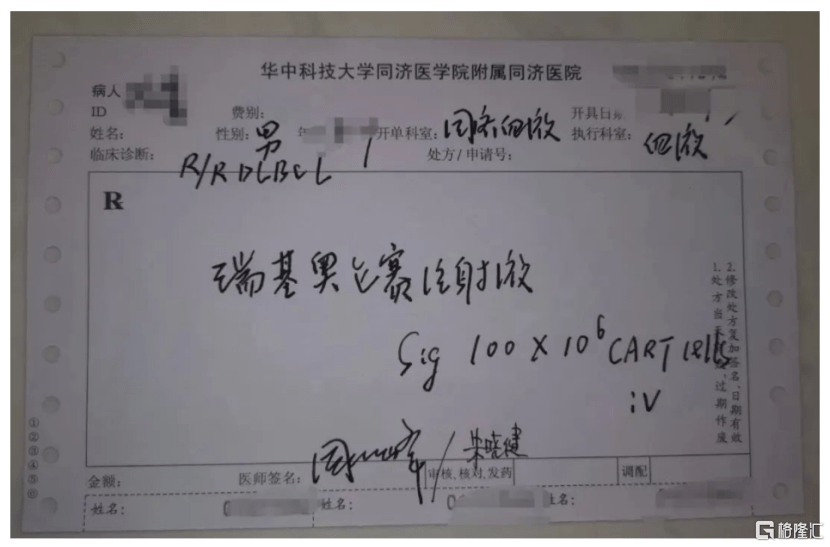 华中科技大学同济医学院附属同济医院
病人
ID 费别: 开具日
姓名: 性别: 男 年 开单科室: 血液 执行科室: 血液
临床诊断: R/R DLBCL 处方/申请号:
R
瑞基奥仑赛注射液
Sig 100 X 10⁶ CART cells
iv
1.处方当 过期作废
2.修改处方复加签名、日期有效
金额: 医师签名: 朱晓健 审核,核对,发药 调配
姓名: 姓名: 姓名:
①②③④⑤⑥
格隆汇